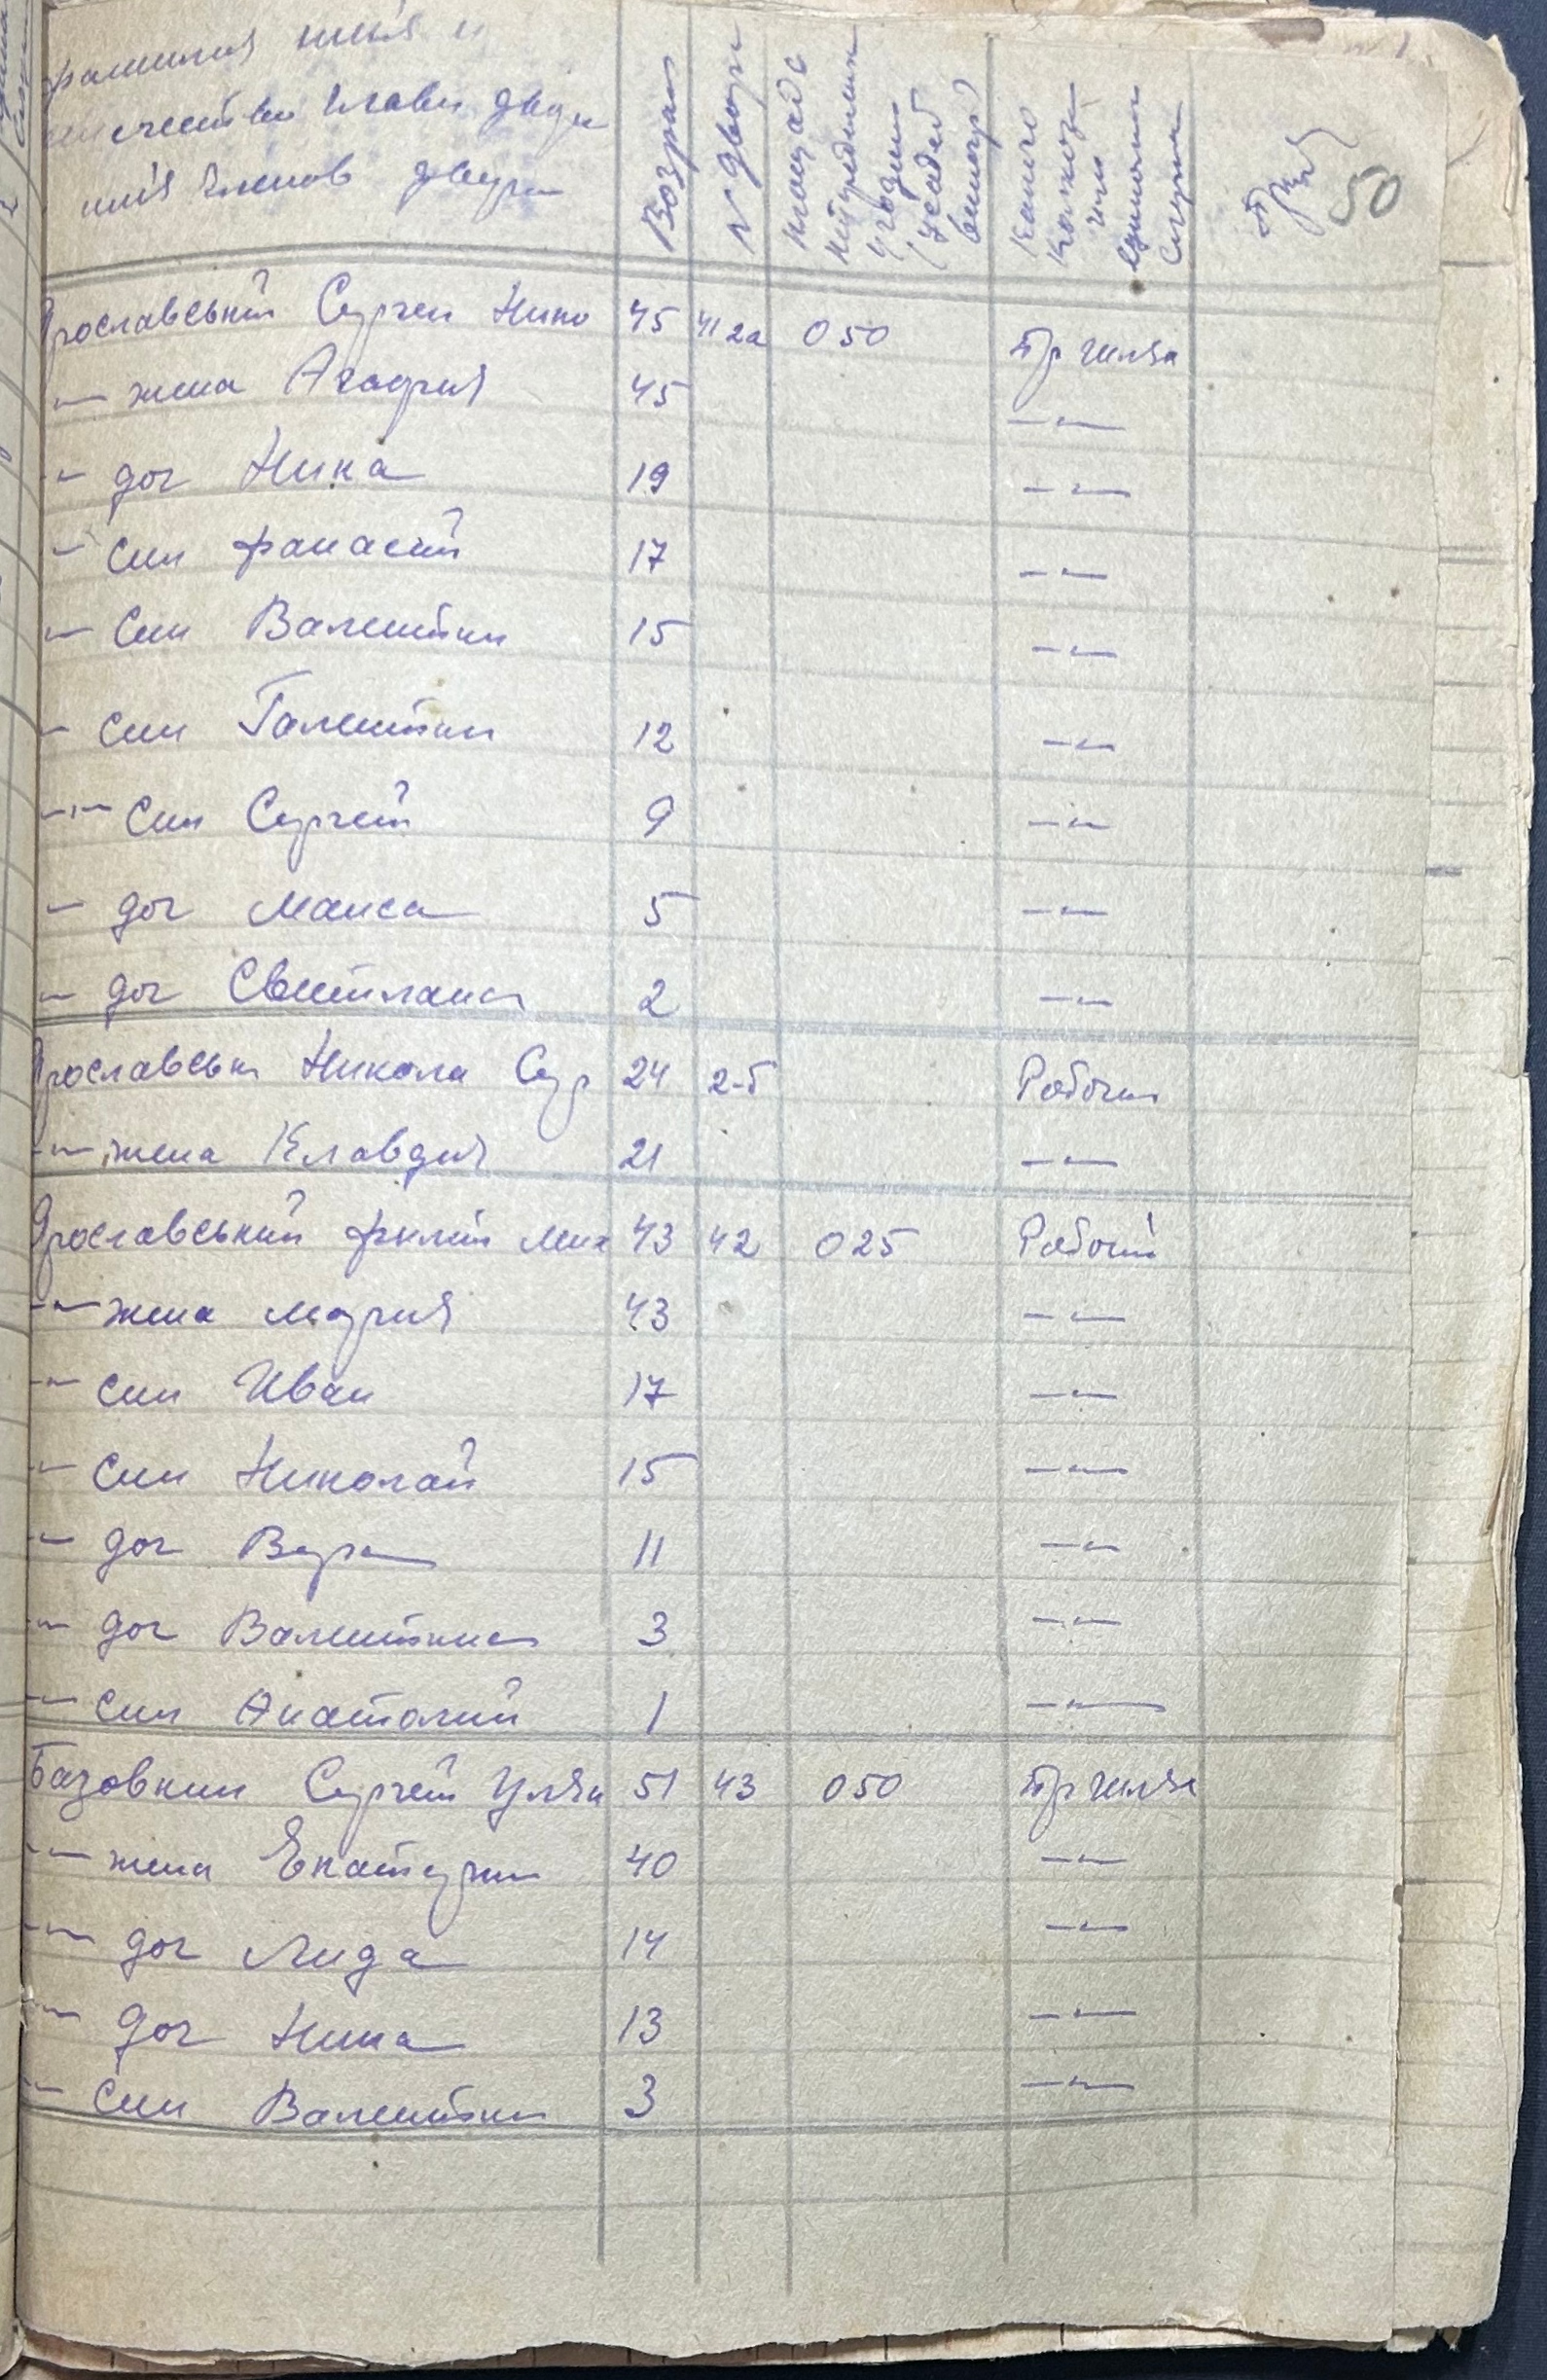 фамилия имя и
отчество главы двора
имя членов двора
Возраст
№ двора
площадь
угодин
(усадеб
какого
колхоза
или
единоличн
50
Ярославський Сергей Нико 45 41 2а 0 50
–"– жена Агафия 45 –"–
–"– доч Нина 19 –"–
–"– син Фанасий 17 –"–
–"– син Валентин 15 –"–
–"– син Галентин 12 –"–
–"– син Сергей 9 –"–
–"– доч Маиса 5 –"–
–"– доч Светлана 2 –"–
Ярославськи Никола Сер 24 2-б Рабочи
–"– жена Клавдия 21 –"–
Ярославський Филип Мих 43 42 0 25 Рабочий
–"– жена Мария 43 –"–
–"– син Иван 17 –"–
–"– син Николай 15 –"–
–"– доч Вера 11 –"–
–"– доч Валентина 3 –"–
–"– син Анатолий 1 –"–
Базовкин Сергей Улян 51 43 0 50
–"– жена Екатерин 40 –"–
–"– доч Лида 14 –"–
–"– доч Нина 13 –"–
–"– син Валентин 3 –"–